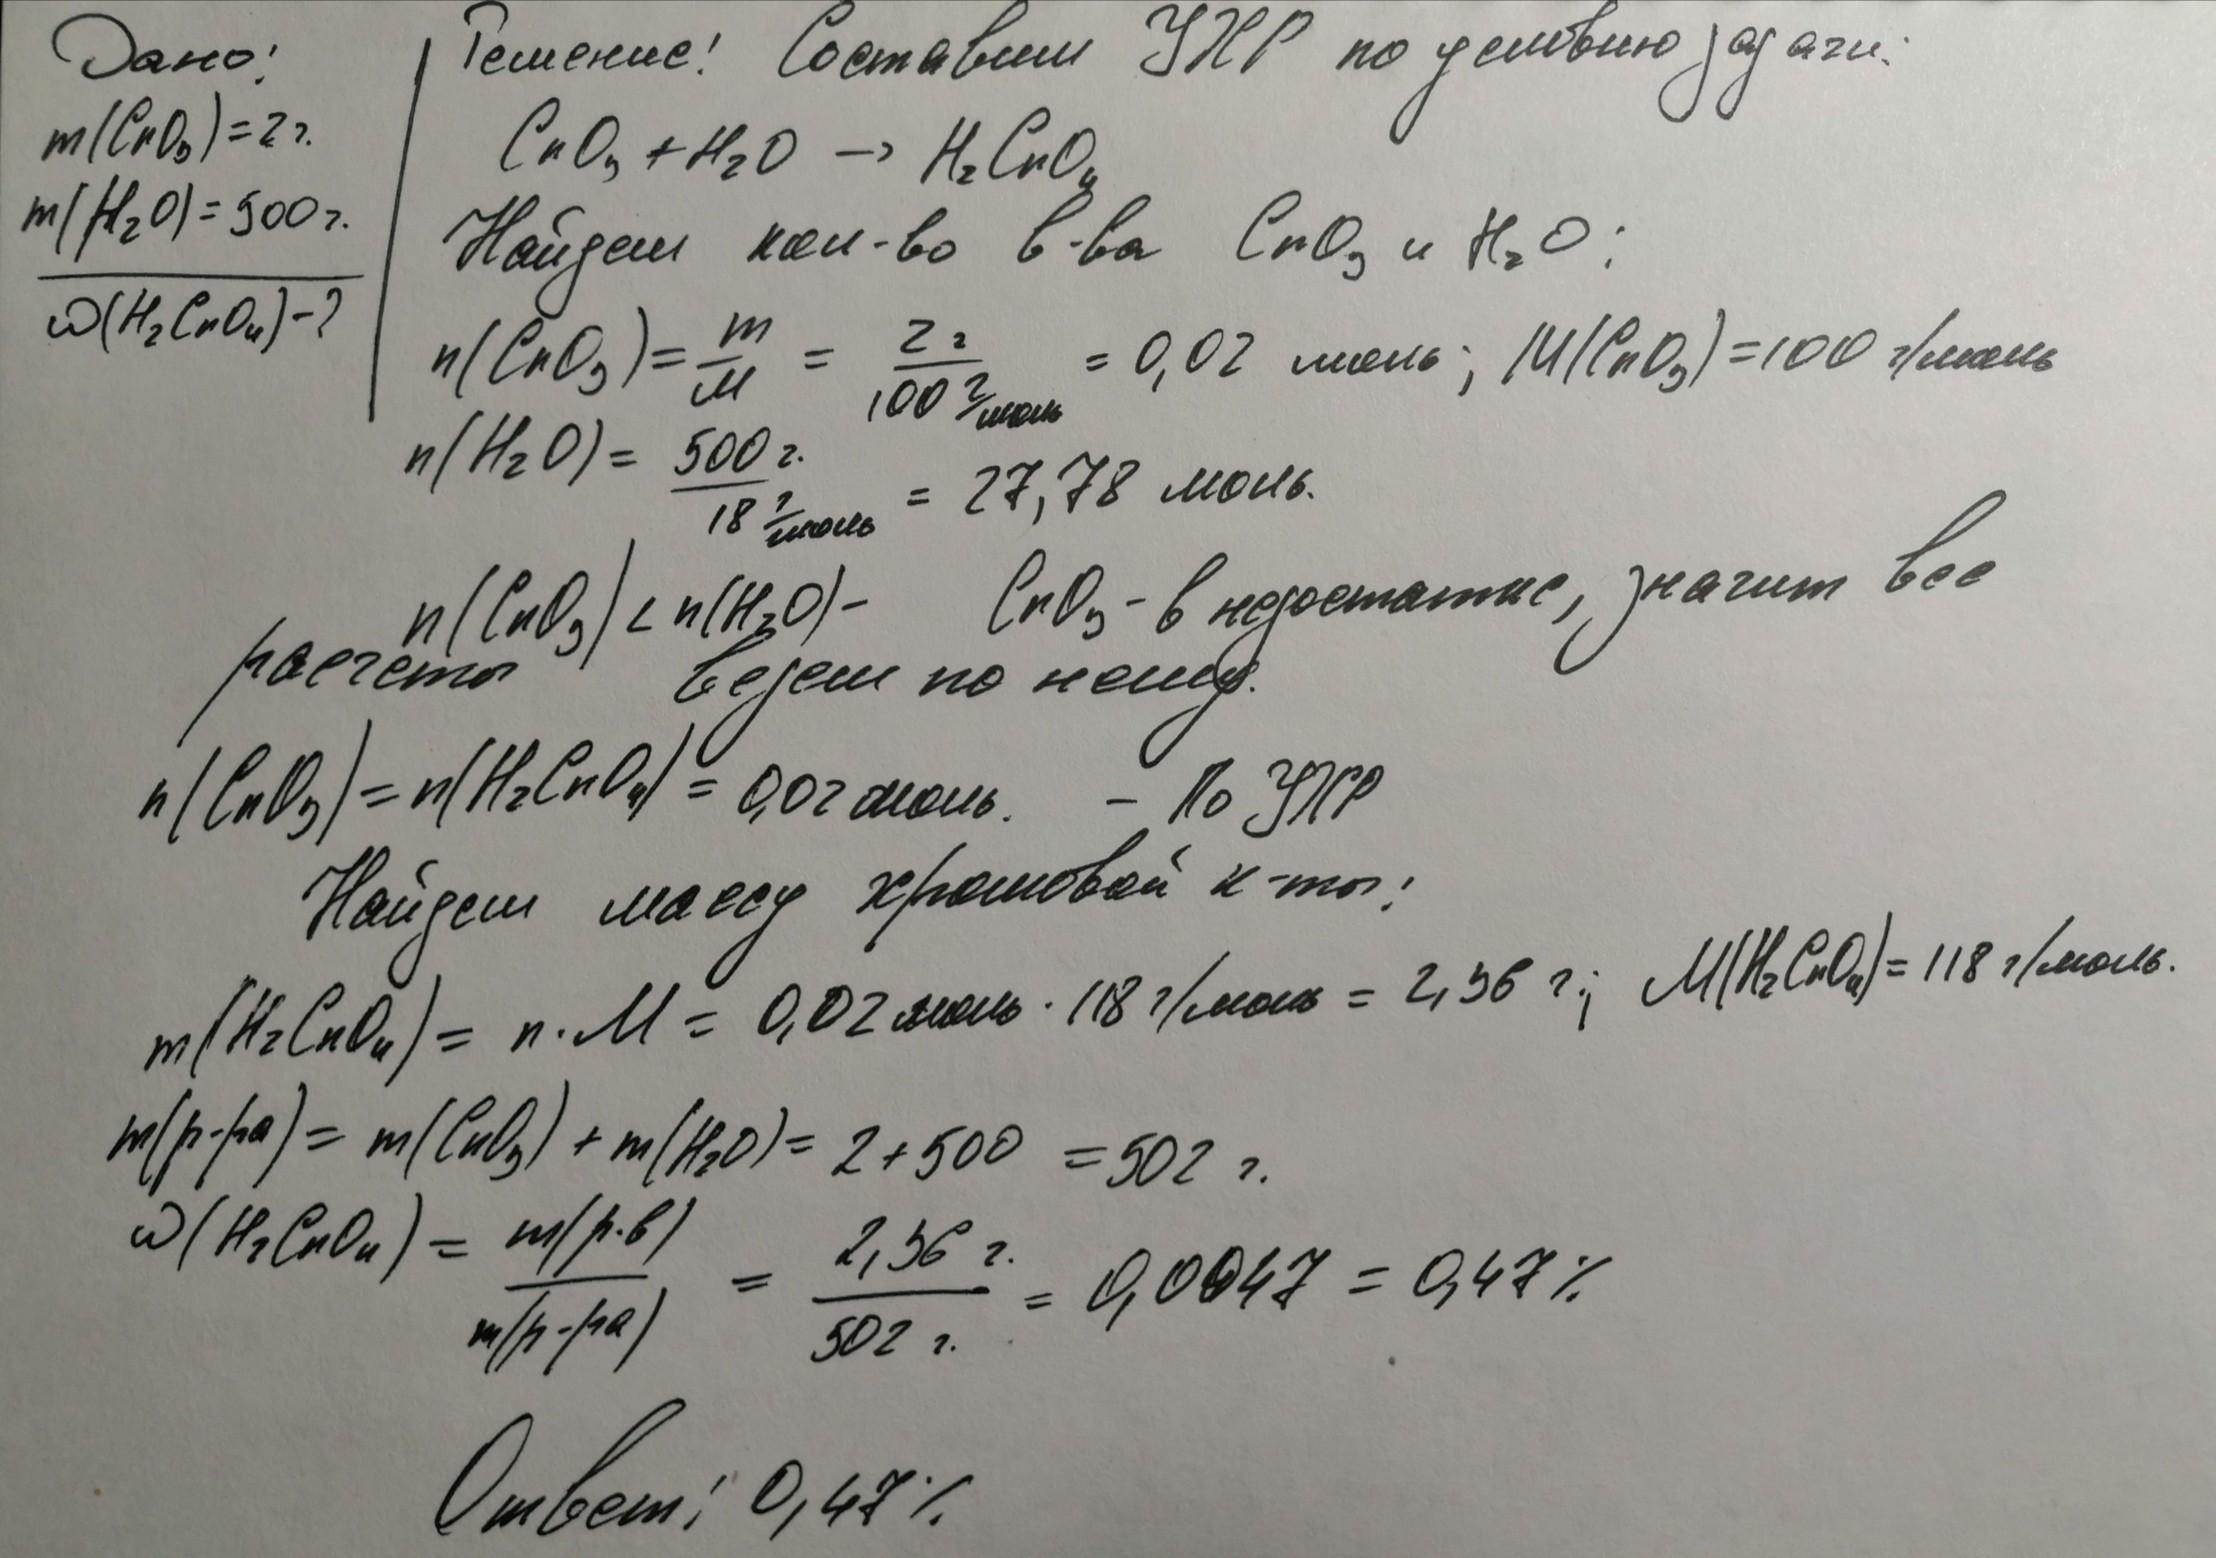 Дано:
m(CrO₃)=2 г.
m(H₂O)=500 г.
ω(H₂CrO₄)-?
Решение: Составим УХР по условию задачи:
CrO₃ + H₂O → H₂CrO₄
Найдем кол-во в-ва CrO₃ и H₂O:
n(CrO₃) = m/M = 2 г/100 г/моль = 0,02 моль; M(CrO₃)=100 г/моль
n(H₂O) = 500 г./18 г/моль = 27,78 моль.
n(CrO₃) < n(H₂O) - CrO₃ - в недостатке, значит все
расчеты ведем по нему.
n(CrO₃) = n(H₂CrO₄) = 0,02 моль. - По УХР
Найдем массу хромовой к-ты:
m(H₂CrO₄) = n·M = 0,02 моль · 118 г/моль = 2,36 г; M(H₂CrO₄) = 118 г/моль.
m(р-ра) = m(CrO₃) + m(H₂O) = 2+500 = 502 г.
ω(H₂CrO₄) = m(р.в)/m(р-ра) = 2,36 г./502 г. = 0,0047 = 0,47 %
Ответ: 0,47 %